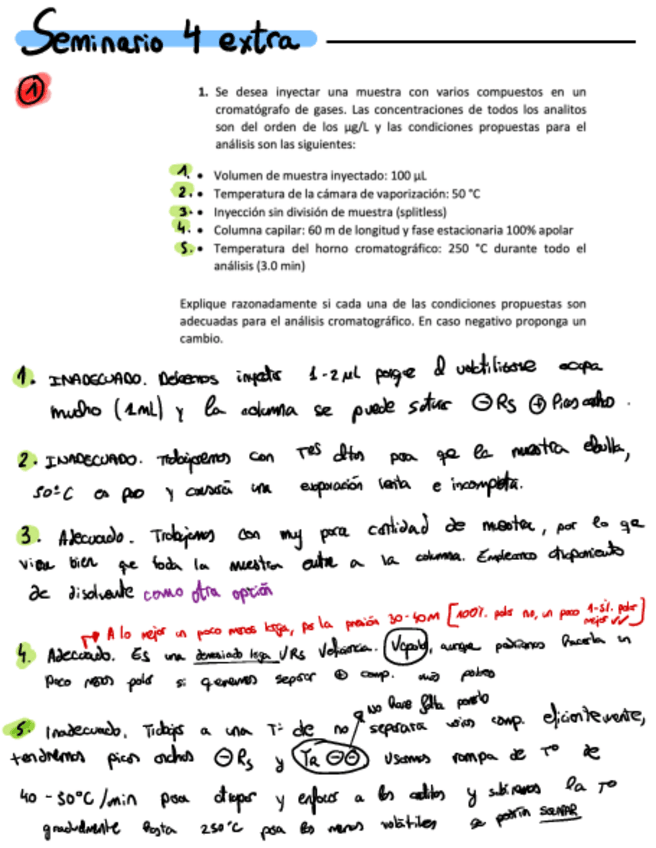 Seminario 4 extra
1
1. Se desea inyectar una muestra con varios compuestos en un
cromatógrafo de gases. Las concentraciones de todos los analitos
son del orden de los µg/L y las condiciones propuestas para el
análisis son las siguientes:
1. • Volumen de muestra inyectado: 100 µL
2. • Temperatura de la cámara de vaporización: 50 °C
3. • Inyección sin división de muestra (splitless)
4. • Columna capilar: 60 m de longitud y fase estacionaria 100% apolar
5. • Temperatura del horno cromatográfico: 250 °C durante todo el
análisis (3.0 min)
Explique razonadamente si cada una de las condiciones propuestas son
adecuadas para el análisis cromatográfico. En caso negativo proponga un
cambio.
1. INADECUADO. Debemos inyectar 1-2 µl porque al volatilizarse ocupa
mucho (1mL) y la columna se puede saturar ⊖ Rs ⊕ Picos ancho.
2. INADECUADO. Trabajaremos con Tªs altas para que la muestra ebulla,
50ºC es poco y causará una evaporación lenta e incompleta.
3. Adecuado. Trabajamos con muy poca cantidad de muestra, por lo que
viene bien que toda la muestra entre a la columna. Empleamos
de disolvente como otra opción
A lo mejor un poco menos larga, por la presión 30-40M [100% polar no, un poco 1-5% polar mejor ✓✓]
4. Adecuado. Es una demasiado larga ✓Rs ✓eficiencia. ✓apolar, aunque podríamos hacerla un
poco menos polar si queremos separar ⊕ comp. más polares
no hace falta ponerlo
5. Inadecuado. Trabajar a una Tª de no separará varios comp. eficientemente,
tendremos picos anchos ⊖ Rs y TR ⊖⊖ Usamos rampa de Tº de
40-50ºC/min para atrapar y enfocar a los analitos y subiremos la Tº
gradualmente hasta 250ºC para los menos volátiles se podrán SEPARAR